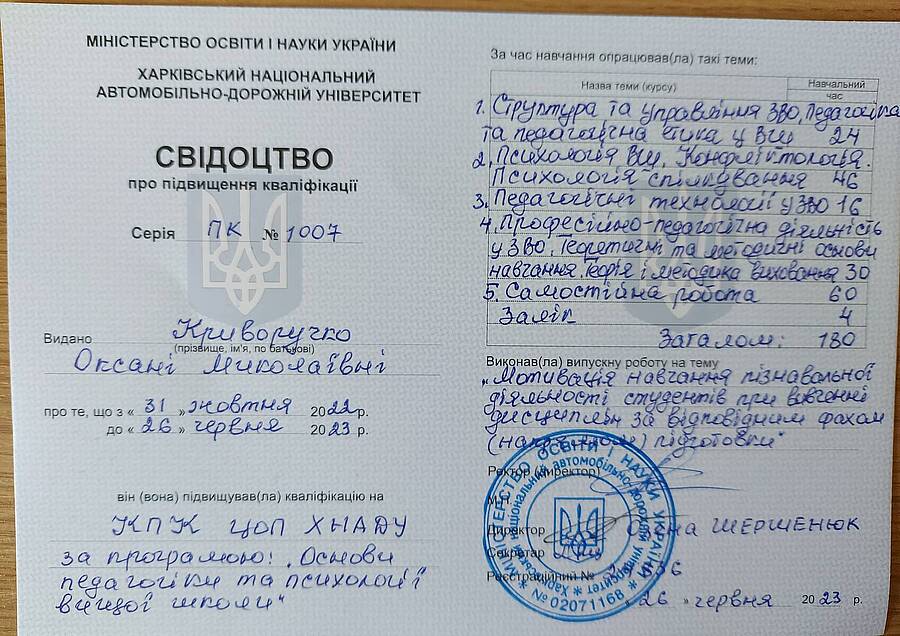 МІНІСТЕРСТВО ОСВІТИ І НАУКИ УКРАЇНИ
ХАРКІВСЬКИЙ НАЦІОНАЛЬНИЙ
АВТОМОБІЛЬНО-ДОРОЖНІЙ УНІВЕРСИТЕТ
СВІДОЦТВО
про підвищення кваліфікації
Серія ПК № 1007
Видано Криворучко
(прізвище, ім'я, по батькові)
Оксані Миколаївні
про те, що з « 31 » жовтня 2022 р.
до « 26 » червня 2023 р.
він (вона) підвищував(ла) кваліфікацію на
КПК ЦОП ХНАДУ
за програмою: „Основи
педагогіки та психології
вищої школи"
За час навчання опрацював(ла) такі теми:
Назва теми (курсу) Навчальний
час
1. Структура та управління ЗВО. Педагогіка
та педагогічна етика у ВШ 24
2. Психологія ВШ. Конфліктологія.
Психологія спілкування 46
3. Педагогічні технології у ЗВО 16
4. Професійно-педагогічна діяльність
у ЗВО. Теоретичні та методичні основи
навчання. Теорія і методика виховання 30
5. Самостійна робота 60
Залік 4
Загалом: 180
Виконав(ла) випускну роботу на тему
„Мотивація навчання пізнавальної
діяльності студентів при вивченні
дисциплін за відповідним фахом
(напрямом) підготовки"
Ректор (директор)
М.П.
Директор ШЕРШЕНЮК
Секретар
Реєстраційний №
« 26 » червня 2023 р.
МІНІСТЕРСТВО ОСВІТИ І НАУКИ УКРАЇНИ
Харківський національний автомобільно-дорожній університет
№ 02071168